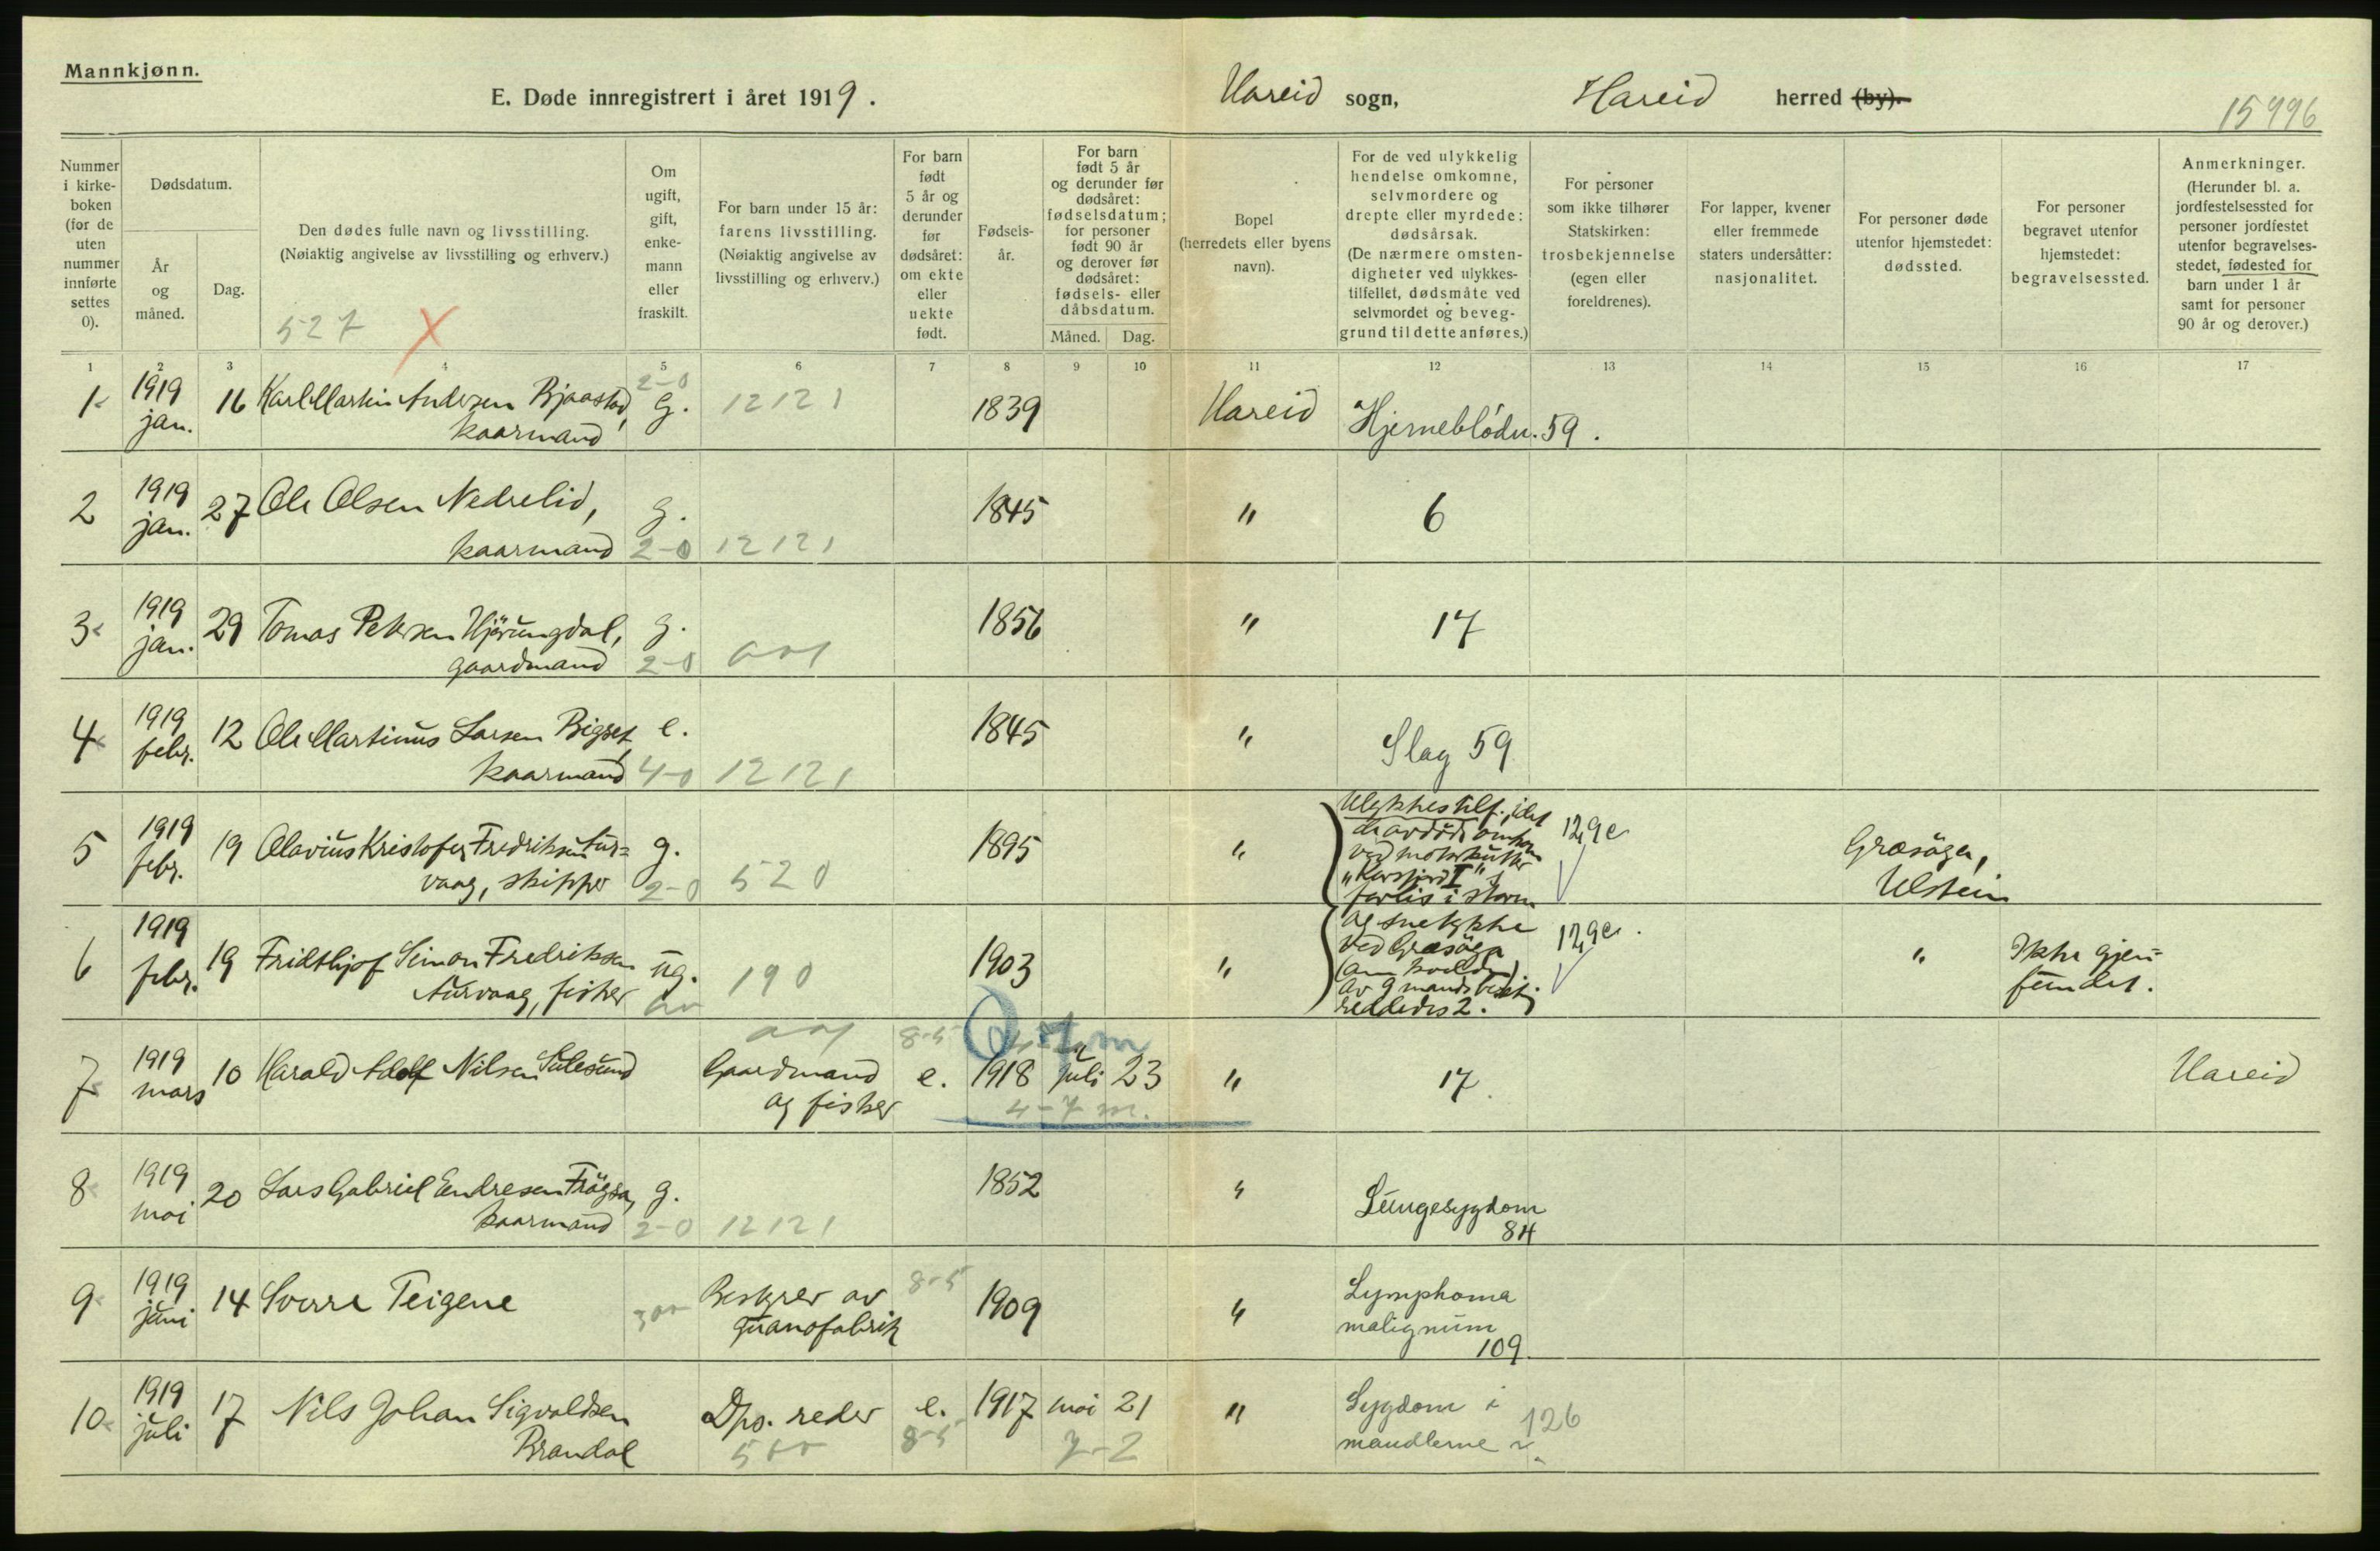 Mannkjønn.
E. Døde innregistrert i året 1919.
Hareid sogn,
Hareid herred (by).
15996
Nummer
i kirke-
boken
(for de
uten
nummer
innførte
settes
0).
Dødsdatum.
År
og
måned.
Dag.
Den dødes fulle navn og livsstilling.
(Nøiaktig angivelse av livsstilling og erhverv.)
527 X
Om
ugift,
gift,
enke-
mann
eller
fraskilt.
For barn under 15 år:
farens livsstilling.
(Nøiaktig angivelse av
livsstilling og erhverv.)
For barn
født
5 år og
derunder
før
dødsåret:
om ekte
eller
uekte
født.
Fødsels-
år.
For barn
født 5 år
og derunder før
dødsåret:
fødselsdatum;
for personer
født 90 år
og derover før
dødsåret:
fødsels- eller
dåbsdatum.
Måned. Dag.
Bopel
(herredets eller byens
navn).
For de ved ulykkelig
hendelse omkomne,
selvmordere og
drepte eller myrdede:
dødsårsak.
(De nærmere omsten-
digheter ved ulykkes-
tilfellet, dødsmåte ved
selvmordet og beveg-
grund til dette anføres.)
For personer
som ikke tilhører
Statskirken:
trosbekjennelse
(egen eller
foreldrenes).
For lapper, kvener
eller fremmede
staters undersåtter:
nasjonalitet.
For personer døde
utenfor hjemstedet:
dødssted.
For personer
begravet utenfor
hjemstedet:
begravelsessted.
Anmerkninger.
(Herunder bl. a.
jordfestelsessted for
personer jordfestet
utenfor begravelses-
stedet, fødested for
barn under 1 år
samt for personer
90 år og derover.)
1 2 3 4 5 6 7 8 9 10 11 12 13 14 15 16 17
1 1919 16 Karl Martin Andersen Bjaastad, 2-0 g. 12121 1839 Hareid Hjerneblødn. 59.
jan. kaarmand
2 1919 27 Ole Olsen Nedrelid, g. 1845 " 6
jan. kaarmand 2-0 12121
3 1919 29 Tomas Petersen Hjørungdal, g. 1856 " 17
jan. gaardmand 2-0
4 1919 12 Ole Martinus Larsen Bigset, e. 1845 " Slag 59
febr. kaarmand 4-0 12121
5 1919 19 Olavius Kristofer Fredriksen Tur= g. 1895 "
febr. vaag, skipper 2-0 520
Ulykkestilf., idet
de avdøde omkom
ved motorkutter
forlis i storm
Græsøger,
Ulstein
6 1919 19 Fridthjof Simon Fredriksen ug. 190 1903 "
febr. Turvaag, fisker
og snetykke
ved Græsøger
av 9 mands besetn.
reddedes 2.
" Ikke gjen=
fundet.
7 1919 10 Harald Adolf Nilsen Sulesund Gaardmand e. 1918 juli 23 " 17 Hareid
mars og fisker 8-5 4-7 m.
8 1919 20 Lars Gabriel Endresen Frøysa, g. 1852 " Lungesygdom
mai kaarmand 2-0 12121 84
9 1919 14 Sverre Teigene Bestyrer av 8-5 1909 " Lymphoma
juni guanofabrik malignum
109
10 1919 17 Nils Johan Sigvaldsen Dps. reder e. 1917 mai 21 " Sygdom i
juli Brandal 8-5 7-2 mandlerne 126